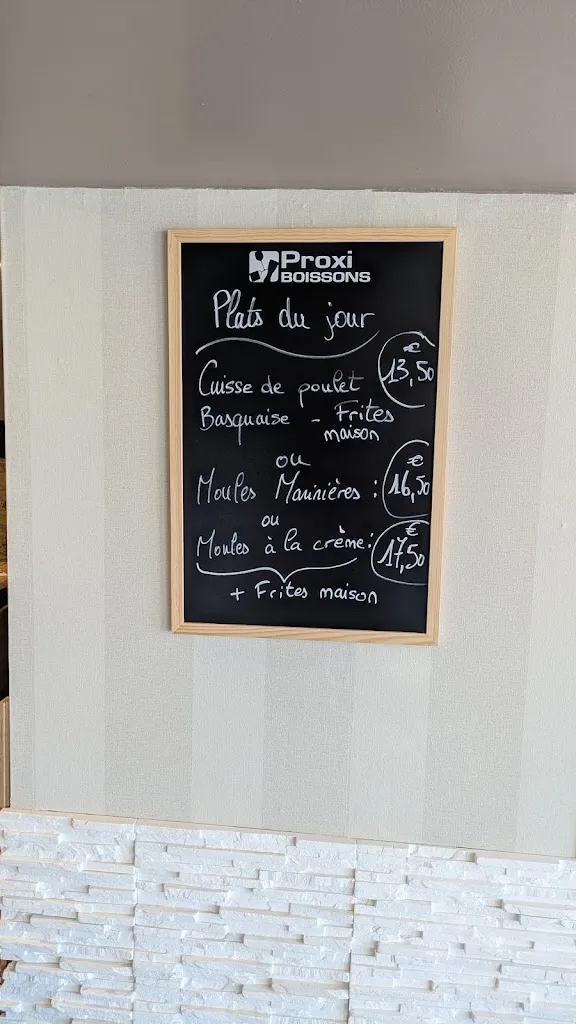 Proxi
BOISSONS
Plats du jour
Cuisse de poulet
€ 13,50
Basquaise - Frites
maison
ou
Moules Marinières : € 16,50
ou
Moules à la crème : € 17,50
+ Frites maison